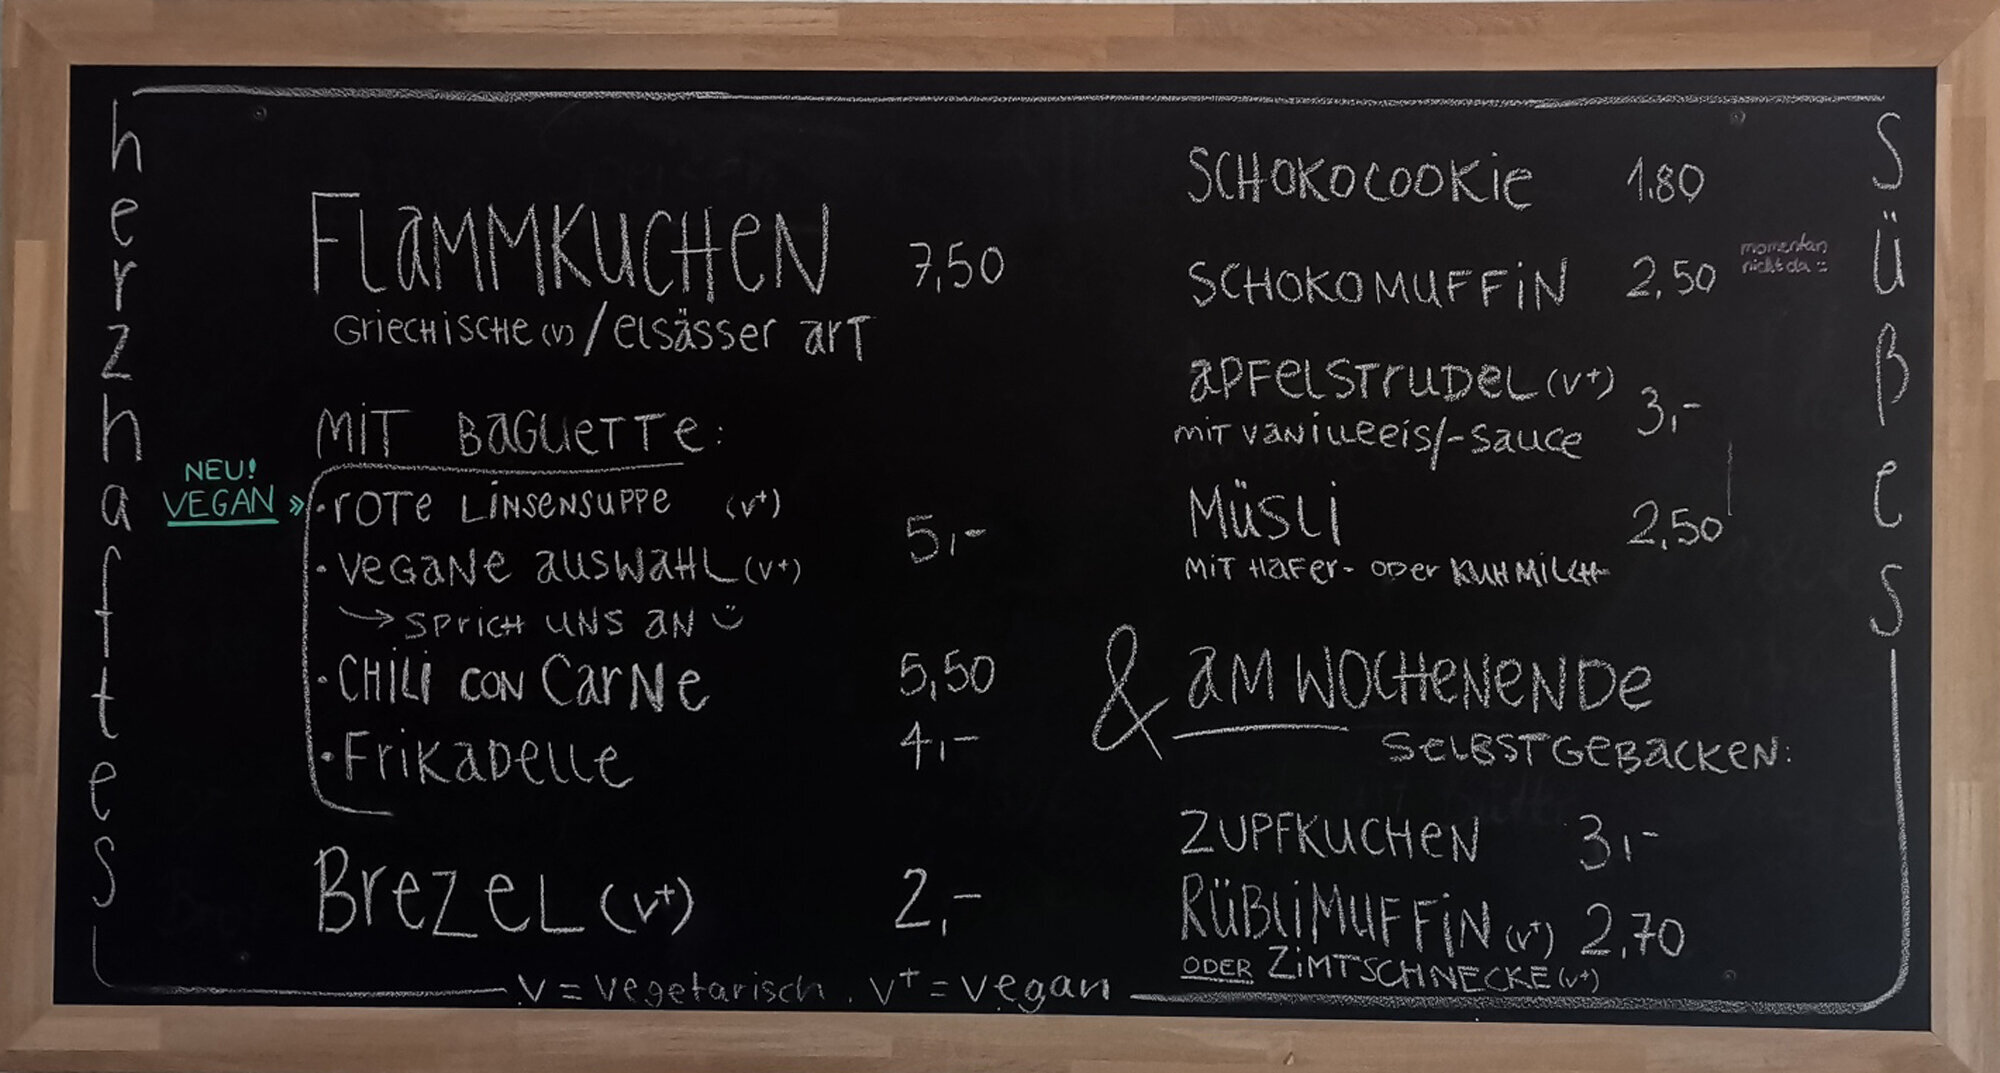 herzhaftes
FLAMMKUCHEN 7,50
GRIECHISCHE (V) / ELSÄSSER ART
MIT BAGUETTE:
NEU!
VEGAN »
· ROTE LINSENSUPPE (V+)
· VEGANE AUSWAHL (V+) 5,-
→ SPRICH UNS AN ü
· CHILI CON CARNE 5,50
· FRIKADELLE 4,-
BREZEL (V+) 2,-
V = vegetarisch . V+ = vegan
SüßeS
SCHOKOCOOKIE 1.80
SCHOKOMUFFIN 2,50
momentan
nicht da :
APFELSTRUDEL (V+) 3,-
MIT VANILLEEIS/-SAUCE
MÜSLI 2,50
MIT HAFER- ODER KUHMILCH
& AM WOCHENENDE
SELBSTGEBACKEN:
ZUPFKUCHEN 3,-
RÜBLIMUFFIN (V+) 2,70
ODER ZIMTSCHNECKE (V+)